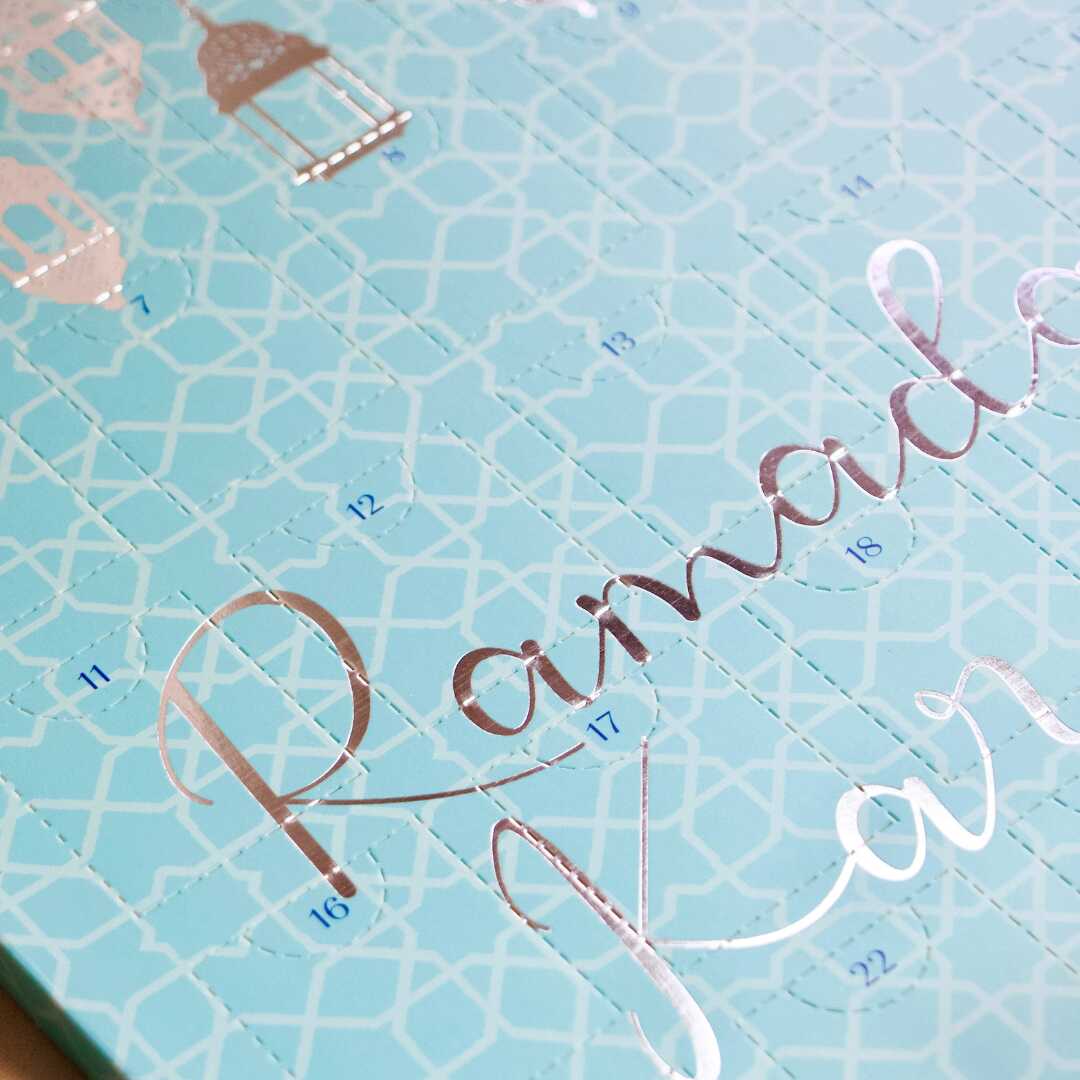 9
8
14
7
13
12
18
11
Ramada
17
Kar
16
22